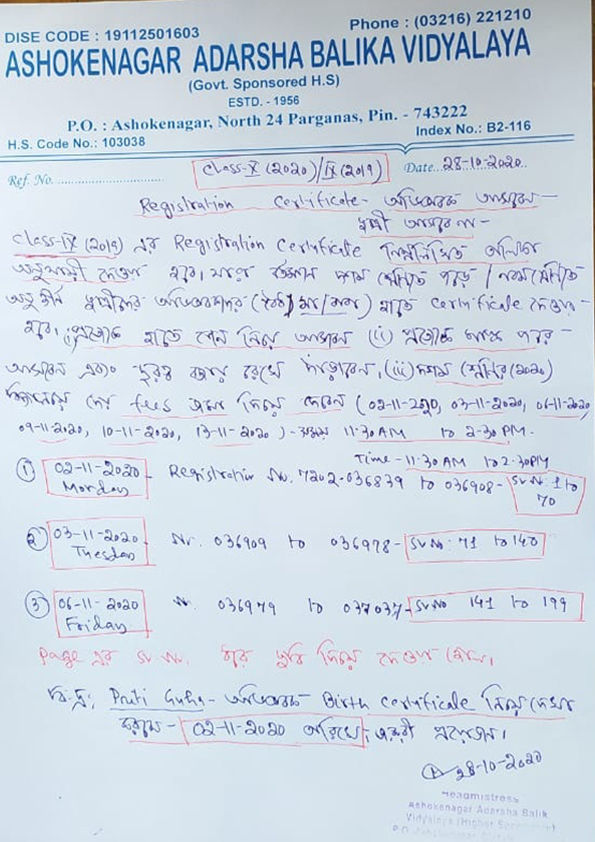 DISE CODE : 19112501603
Phone : (03216) 221210
ASHOKENAGAR ADARSHA BALIKA VIDYALAYA
(Govt. Sponsored H.S)
ESTD. - 1956
P.O. : Ashokenagar, North 24 Parganas, Pin. - 743222
H.S. Code No.: 103038
Index No.: B2-116
Ref. No.
Class-X (2020)/IX (2019)
Date 28-10-2020
Registration Certificate- অভিভাবক আসবেন-
ছাত্রী আসবে না-
Class-IX (2019) এর Registration Certificate নিম্নলিখিত তালিকা
অনুযায়ী দেওয়া হবে। যারা বর্তমান দশম শ্রেণিতে পড়ে / নবম শ্রেণিতে
ছাত্রীদের অভিভাবকদের (মা/বাবা) হাতে Certificate দেওয়া
হবে। পেন নিয়ে আসবেন (ii) প্রত্যেকে মাস্ক পরে-
আসবেন এবং দূরত্ব বজায় রেখে দাঁড়াবেন। (iii) দশম শ্রেণির (2020)
fees জমা দেবেন (02-11-2020, 03-11-2020, 06-11-2020,
09-11-2020, 10-11-2020, 13-11-2020)- সময় 11:30AM to 2-30PM.
Time - 11-30AM to 2-30PM
① 02-11-2020 Monday - Registration No. 7202-036839 to 036908- Sr. No. 1 to 70
② 03-11-2020 Tuesday - Nr. 036909 to 036978- Sr No: 71 to 140
③ 06-11-2020 Friday 036979 to 037037- Sr No 141 to 199
Page এর Sr. No. ছবি দিয়ে দেওয়া হোল।
বি:দ্র: Priti Guha- অভিভাবক Birth Certificate নিয়ে দেখা
করবেন- 02-11-2020 তারিখে, জরুরী প্রয়োজন।
28-10-2020
Headmistress
Ashokenagar Adarsha Balik
Vidyalaya (Higher Secondary)